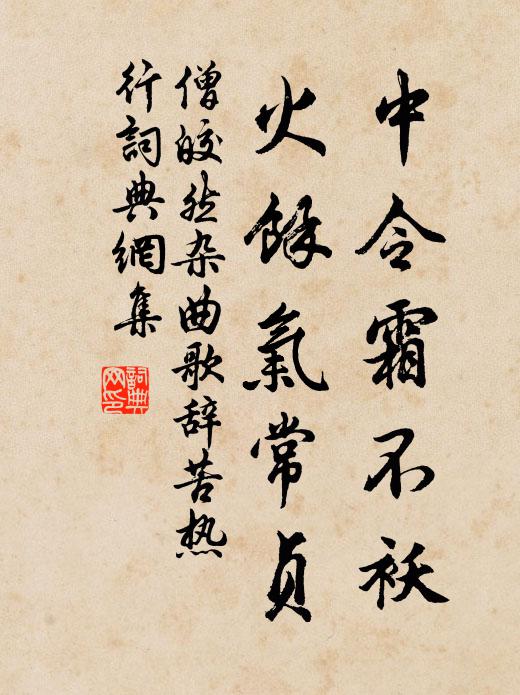 中令霜不袄
火餘氣常貞
僧皎然杂曲歌辞苦热
行詞典網集
詞典
网印